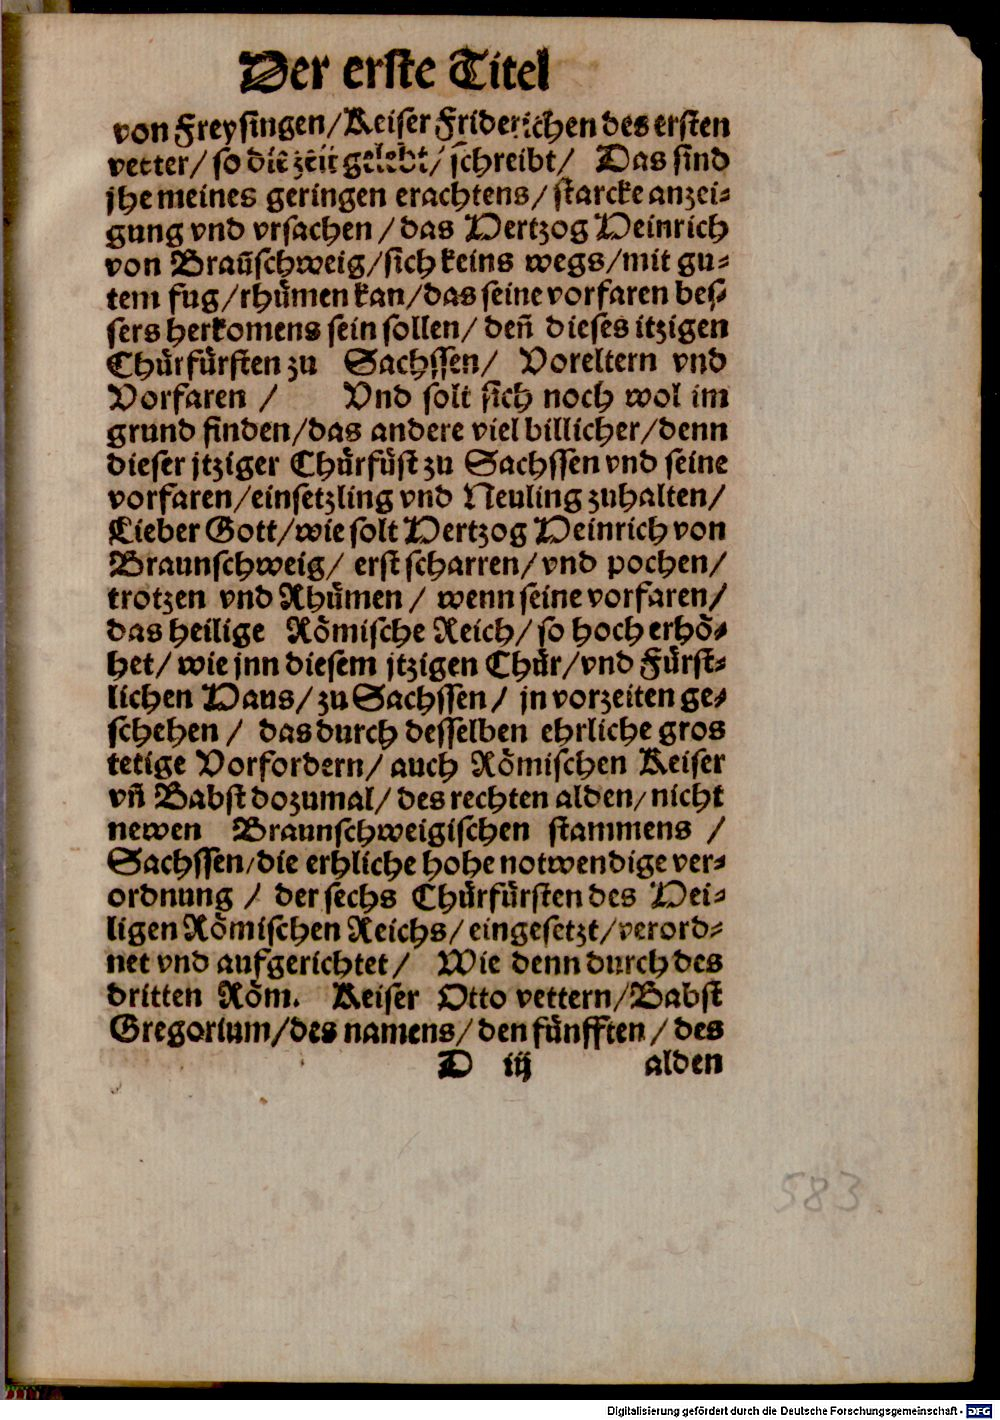 Der erste Titel
von Freysingen/Keiser Friderichen des ersten
vetter/ so die zeit gelebt/ schreibt/ Das sind
jhe meines geringen erachtens/ starcke anzei-
gung vnd vrsachen /das Hertzog Heinrich
von Braūschweig/sich keins wegs/mit gu-
tem fug/rhümen kan/das seine vorfaren bes-
sers herkomens sein sollen/ deñ dieses itzigen
Chürfürsten zu Sachssen/ Voreltern vnd
Vorfaren / Vnd solt sich noch wol im
grund finden/das andere viel billicher/denn
dieser jtziger Chürfüst zu Sachssen vnd seine
vorfaren/einsetzling vnd Neuling zuhalten/
Lieber Gott/wie solt Hertzog Heinrich von
Braunschweig/ erst scharren/vnd pochen/
trotzen vnd Rhümen / wenn seine vorfaren/
das heilige Römische Reich/ so hoch erhö-
het/ wie jnn diesem jtzigen Chür/vnd Fürst-
lichen Haus/ zu Sachssen / jn vorzeiten ge-
schehen / das durch desselben ehrliche gros
tetige Vorfordern/ auch Römischen Keiser
vñ Babst dozumal/ des rechten alden/ nicht
newen Braunschweigischen stammens /
Sachssen/die erhliche hohe notwendige ver-
ordnung / der sechs Chürfürsten des Hei-
ligen Römischen Reichs/ eingesetzt/verord-
net vnd aufgerichtet/ Wie denn durch des
dritten Röm. Keiser Otto vettern/Babst
Gregorium/des namens/ den fünfften / des
D iij alden
583
Digitalisierung gefördert durch die Deutsche Forschungsgemeinschaft - DFG